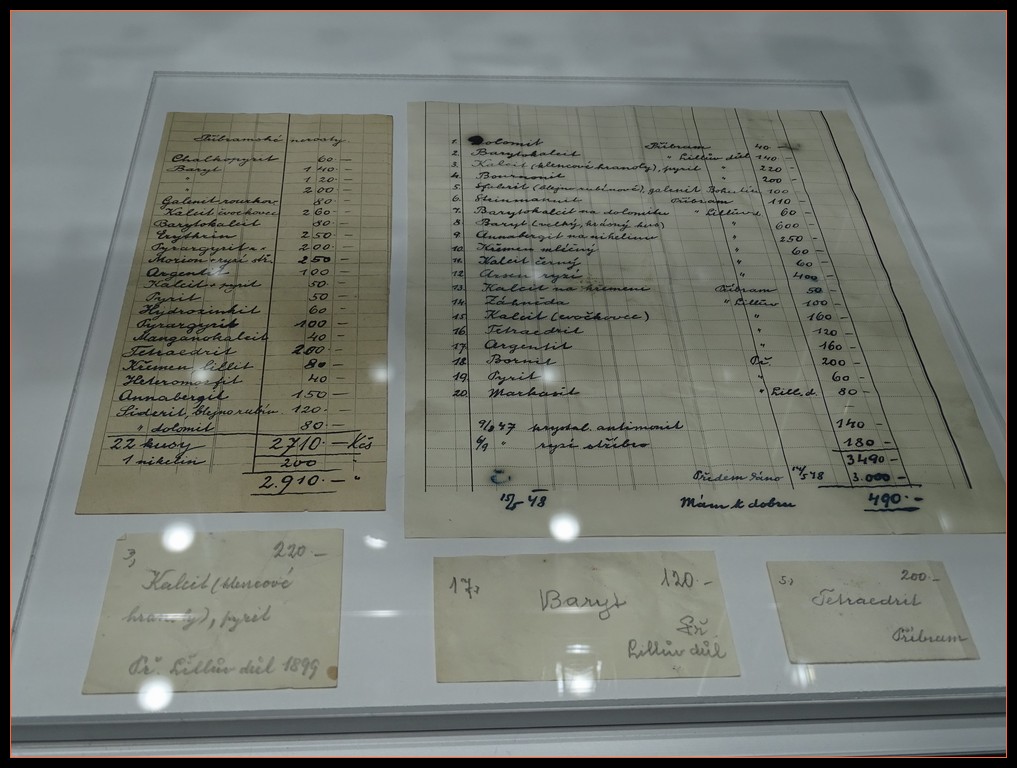 Příbramské nerosty.
Chalkopyrit 60 —
Baryt 140 —
" 120 —
" 200 —
Galenit rourkov. 80 —
Kalcit cvočkovec 260 —
Barytokalcit 80 —
Erythrin 250 —
Pyrargyrit 200 —
Morion + ryzí stř. 250 —
Argentit 100 —
Kalcit + pyrit 50 —
Pyrit 50 —
Hydrozinkit 60 —
Pyrargyrit 100 —
Manganokalcit 40 —
Tetraedrit 200 —
Křemen, lillit 80 —
Heteromorfit 40 —
Annabergit 150 —
Siderit, blejno rubín. 120 —
" dolomit 80 —
22 kusy 2710 — Kčs
1 nikelin 200
2.910 — "
1. Dolomit Příbram 40 —
2. Barytokalcit " Lillův důl 140 —
3. Kalcit (klencové hranoly), pyrit " 220 —
4. Bournonit " 200 —
5. Sfalerit (blejno rubínové), galenit 100 —
6. Steinmannit Příbram 110 —
7. Barytokalcit na dolomitu " Lillův d. 60 —
8. Baryt (velký, krásný kus) " 600 —
9. Annabergit na nikelinu " 250 —
10. Křemen mléčný " 60 —
11. Kalcit černý " 60 —
12. Arsen ryzí " 400 —
13. Kalcit na křemeni Příbram 50 —
14. Záhněda " Lillův 100 —
15. Kalcit (cvočkovec) " 160 —
16. Tetraedrit " 120 —
17. Argentit " 160 —
18. Bornit Př. 200 —
19. Pyrit " 60 —
20. Markasit " Lill. d. 80 —
9/8 47 krystal. antimonit 140 —
4/9 " ryzí stříbro 180 —
3490 —
Předem dáno 14/5 48 3.000 —
Č.
15/5 48 Mám k dobru 490 —
3, 220 —
Kalcit (klencové
hranoly), pyrit
Př. Lillův důl 1899
17, 120 —
Baryt
Př.
Lillův důl
5, 200 —
Tetraedrit
Příbram